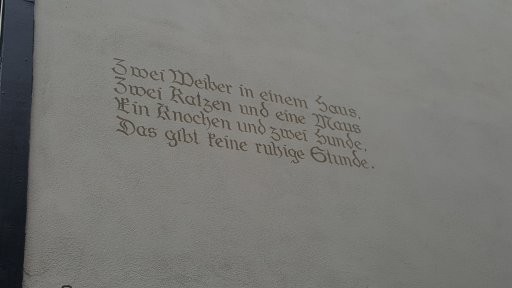 Zwei Weiber in einem Haus,
Zwei Katzen und eine Maus
Ein Knochen und zwei Hunde.
Das gibt keine ruhige Stunde.